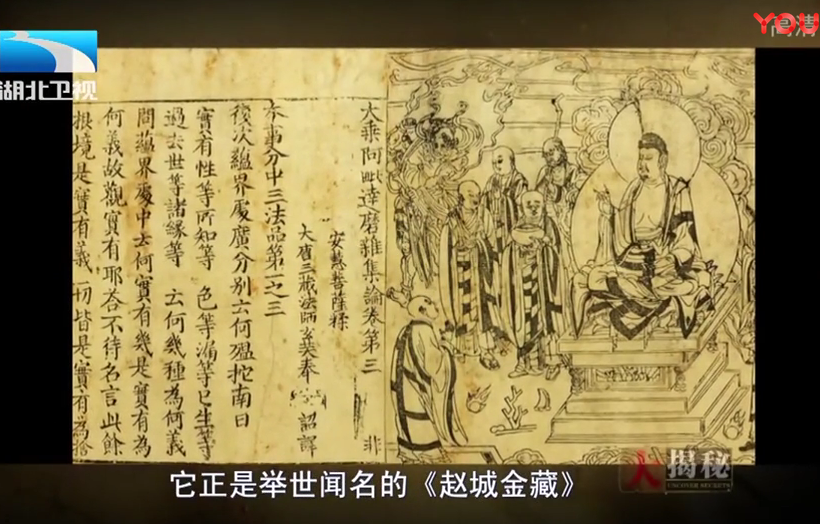 高清
YOU
湖北卫视
大乘阿毗達磨雜集論卷第三 非
安慧菩薩糅
大唐三藏法師玄奘奉 詔譯
本事分中三法品第一之三
復次蘊界處廣分別云何嗢拕南曰
實有性等所知等 色等漏等已生等
過去世等諸緣等 云何幾種為何義
問蘊界處中云何實有幾是實有為
何義故觀實有耶荅不待名言此餘
根境是實有義一切皆是實有為捨
大揭秘
UNCOVER SECRETS
它正是举世闻名的《赵城金藏》